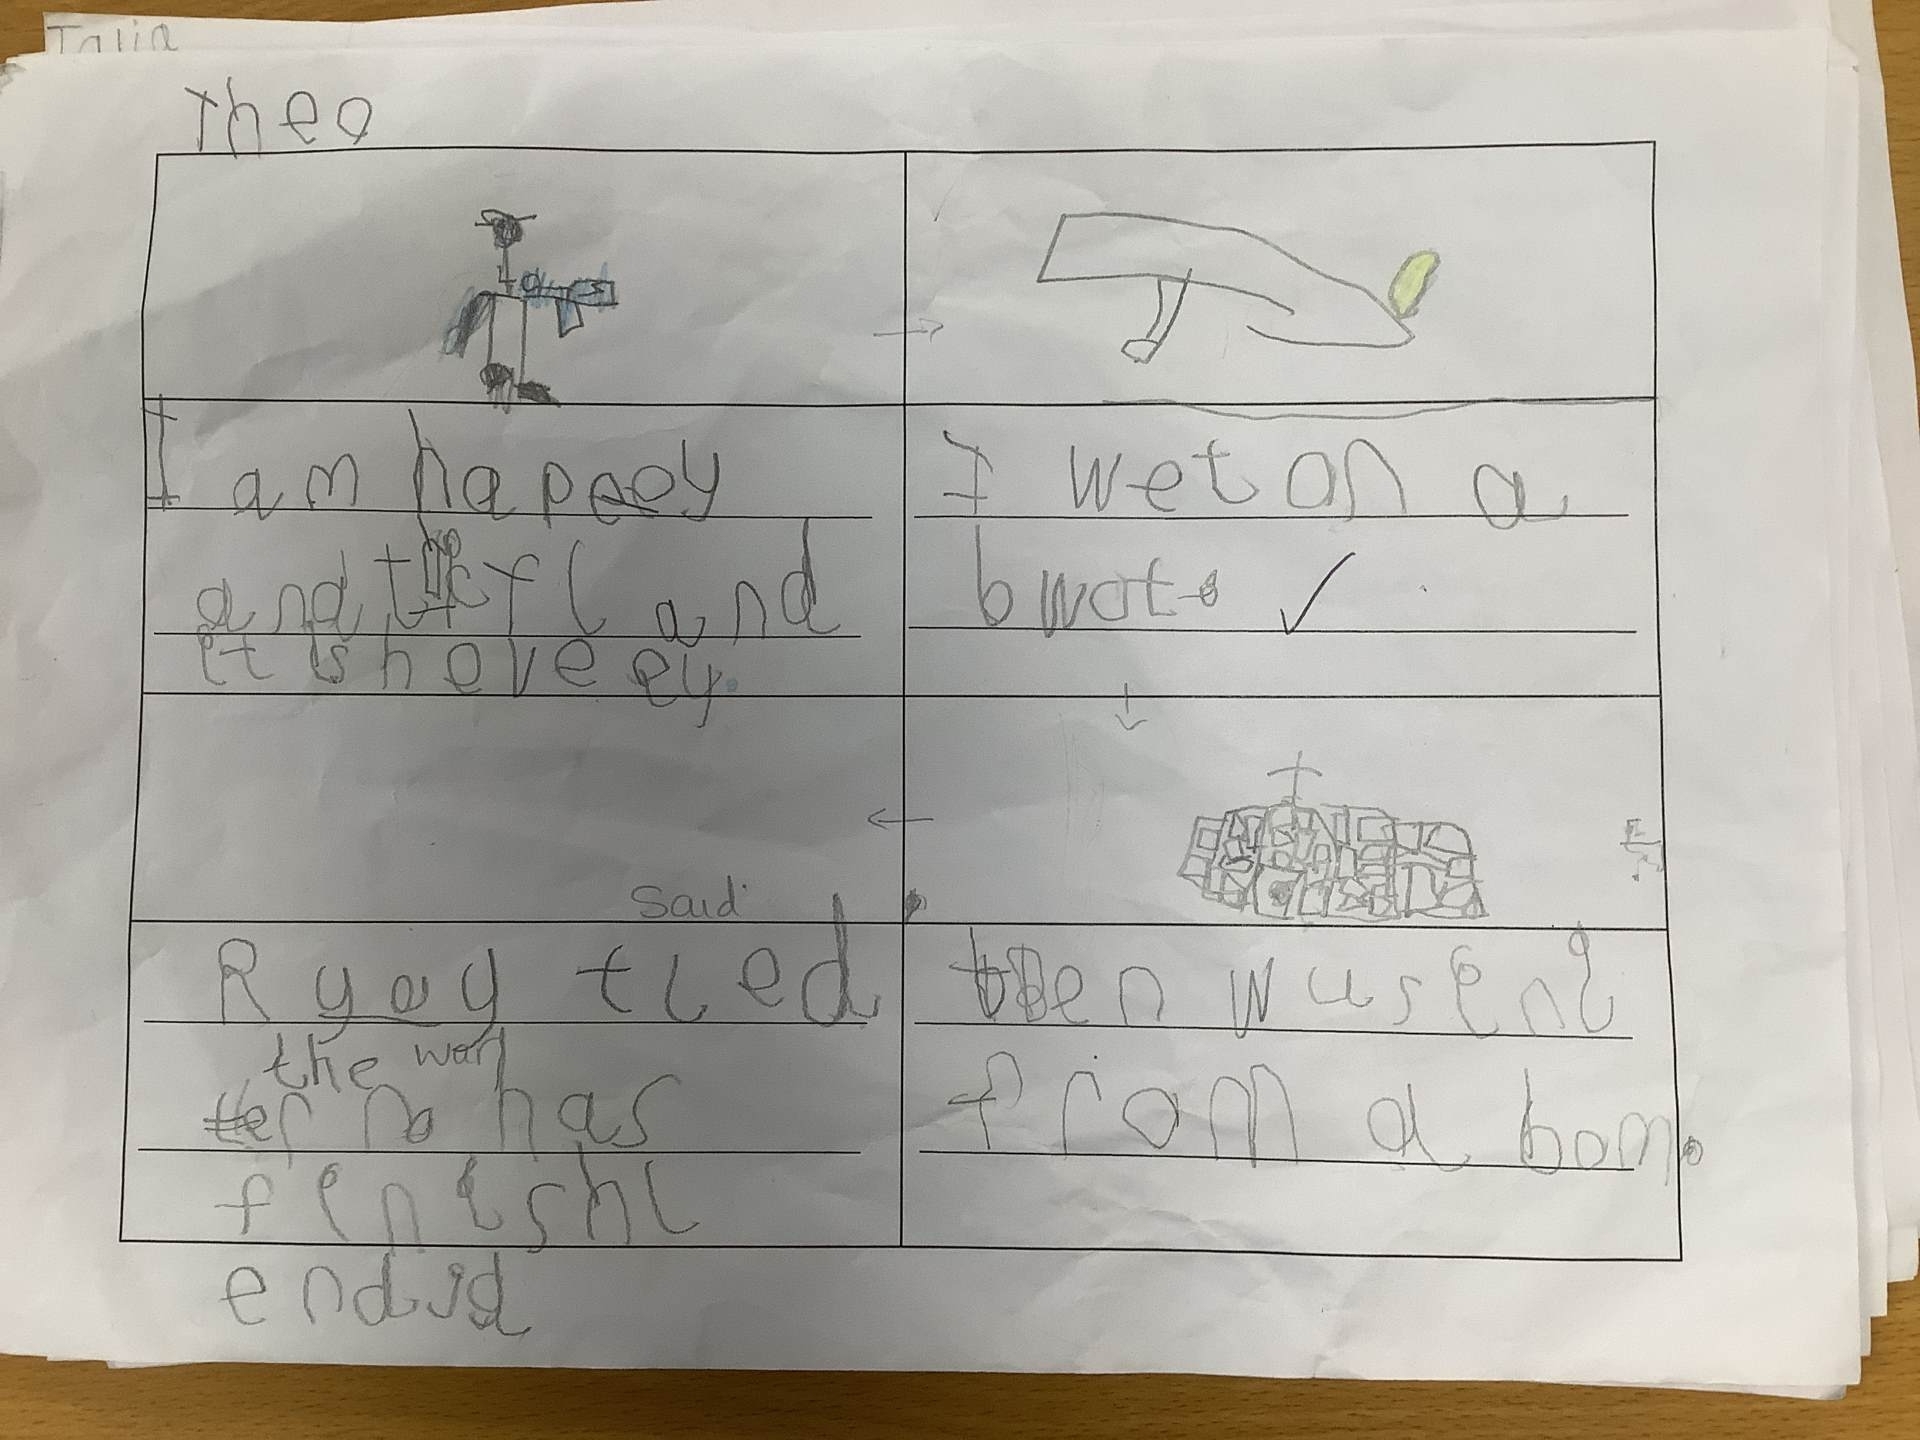 Talia
Theo
I am hapeey
and and
it is hoveey.
I wet on a
bwot.
said
Ryay tled
the war
has
finisht
endid
from a bom.